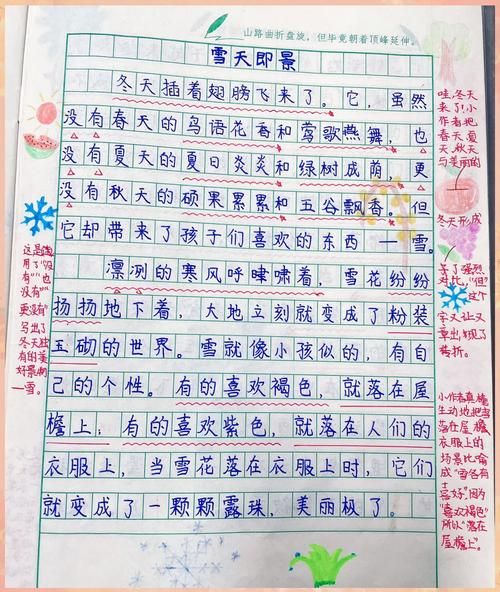 山路曲折盘旋，但毕竟朝着顶峰延伸。
雪天即景
冬天插着翅膀飞来了。它，虽然
没有春天的鸟语花香和莺歌燕舞，也
没有夏天的夏日炎炎和绿树成荫，更
没有秋天的硕果累累和五谷飘香。但
它却带来了孩子们喜欢的东西—雪。
凛冽的寒风呼啸着，雪花纷纷
扬扬地下着，大地立刻就变成了粉装
玉砌的世界。雪就像小孩似的，有自
己的个性。有的喜欢褐色，就落在屋
檐上；有的喜欢紫色，就落在人们的
衣服上，当雪花落在衣服上时，它们
就变成了一颗颗露珠，美丽极了。
哇，冬天
来了！小
作者把
春天、夏
天、秋天
与美丽的
冬天形成
了强烈
对比，"但"
这个
字又让文
章出现了
转折。
这是
用了"没
有""也
没有""
更没有"
写出了
冬天独
有的美
好景物
—雪。
小作者真
生动地把
落在屋檐、
衣服上的
场景比喻
成"雪各有
喜好"，因为
"喜欢褐色"
所以"落在
屋檐上"。